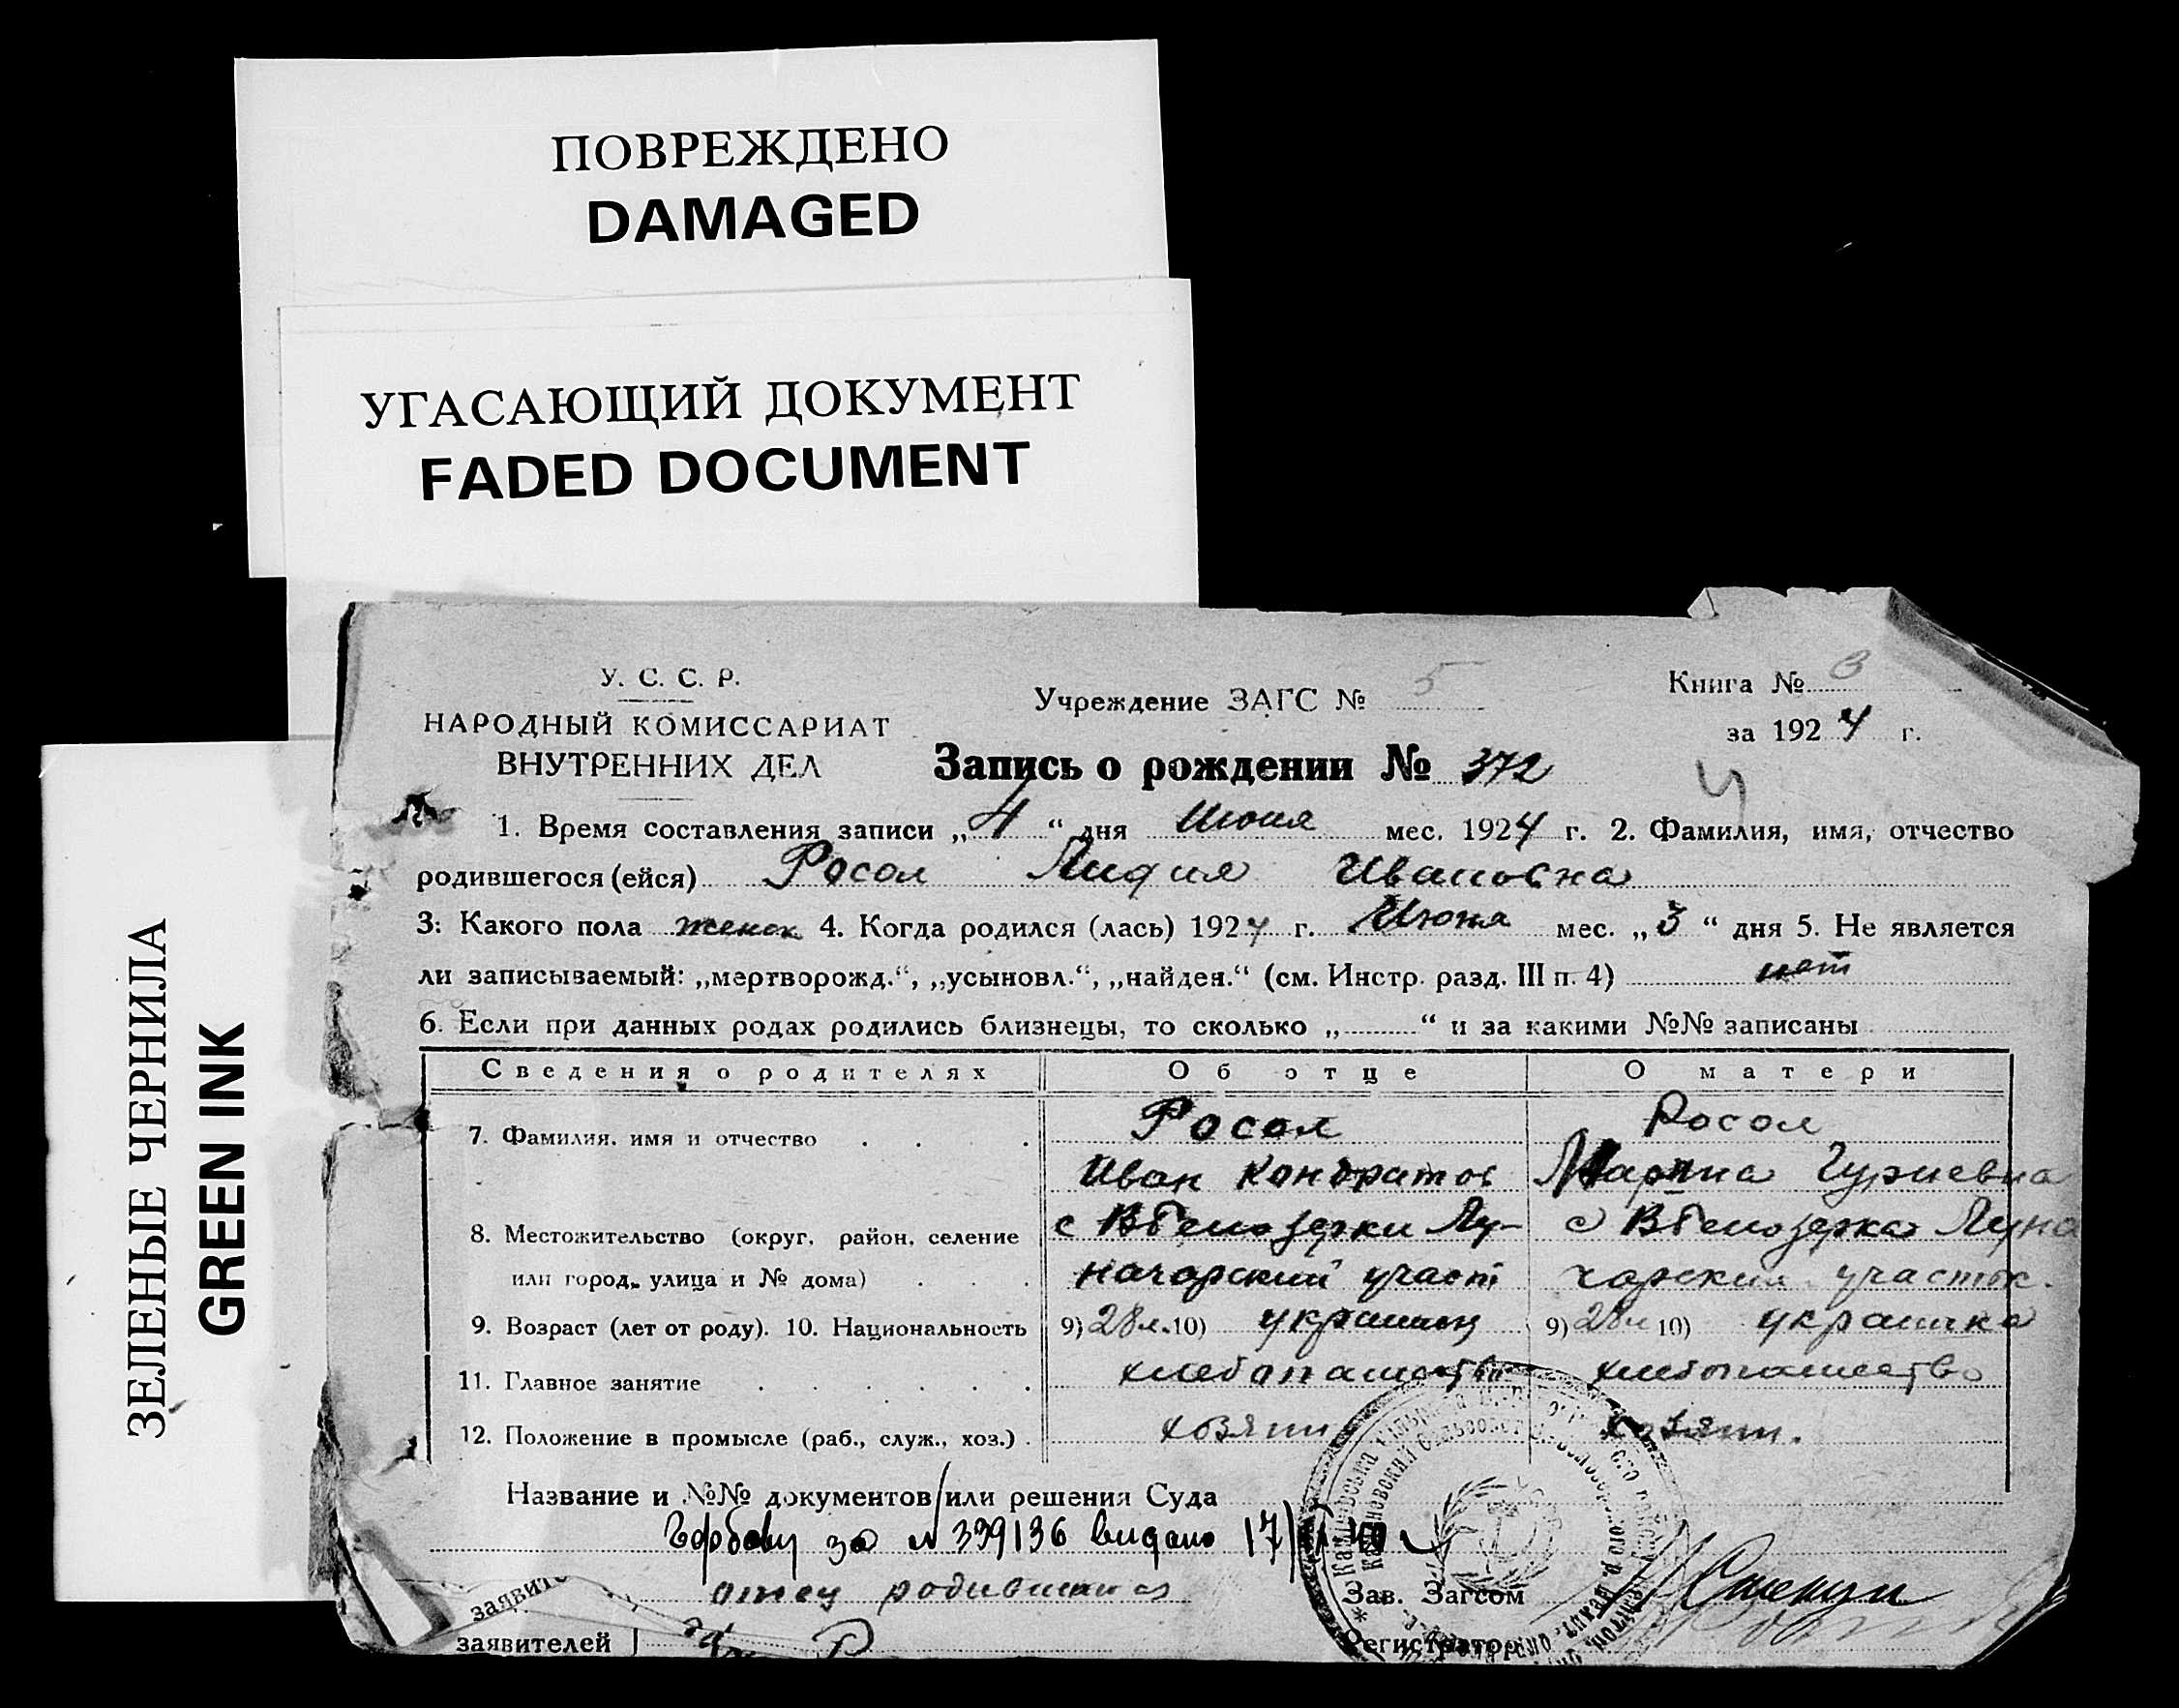 ПОВРЕЖДЕНО
DAMAGED
УГАСАЮЩИЙ ДОКУМЕНТ
FADED DOCUMENT
ЗЕЛЕНЫЕ ЧЕРНИЛА
GREEN INK
У. С. С. Р.
НАРОДНЫЙ КОМИССАРИАТ
ВНУТРЕННИХ ДЕЛ
Учреждение ЗАГС № 5
Книга № 3
за 1924 г.
Запись о рождении № 372
1. Время составления записи „4“ дня Июня мес. 1924 г. 2. Фамилия, имя, отчество
родившегося (ейся) Росол Лидия Ивановна
3. Какого пола женск 4. Когда родился (лась) 1924 г. Июня мес. „3“ дня 5. Не является
ли записываемый: „мертворожд.“, „усыновл.“, „найден.“ (см. Инстр. разд. III п. 4) нет
6. Если при данных родах родились близнецы, то сколько „ “ и за какими №№ записаны
Сведения о родителях Об отце О матери
7. Фамилия, имя и отчество Росол Росол
Иван Кондратов Гуриевна
8. Местожительство (округ, район, селение с ВБелозерки Лу- с ВБелозерка Луна
или город, улица и № дома) начарский участ чарский участок.
9. Возраст (лет от роду). 10. Национальность 9) 28 л. 10) украинец 9) 28 л 10) украинка
11. Главное занятие хлебопашество хлебопашество
12. Положение в промысле (раб., служ., хоз.) хозяин хозяин.
Название и №№ документов или решения Суда
за № 399136 видано 17
заявит
отец родившейся
Зав. Загсом
заявителей
Регистратор